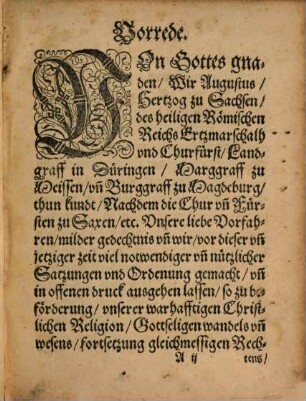 Vorrede.
VOn Gottes gna-
den/ Wir Augustus/
Hertzog zu Sachsen/
des heiligen Römischen
Reichs Ertzmarschalh
vnd Churfürst/ Land-
graff in Düringen/ Marggraff zu
Meissen/ vn̄ Burggraff zu Magdeburg/
thun kundt/ Nachdem die Chur vn̄ Für-
sten zu Saxen/ etc. Vnsere liebe Vorfah-
ren/ milder gedechtnis vn̄ wir/ vor dieser vn̄
jetziger zeit viel notwendiger vn̄ nützlicher
Satzungen vnd Ordenung gemacht/ vn̄
in offenen druck ausgehen lassen/ so zu be-
förderung/ vnserer warhafftigen Christ-
lichen Religion/ Gottseligen wandels vn̄
wesens/ fortsetzung gleichmessigen Rech-
A ij tens/